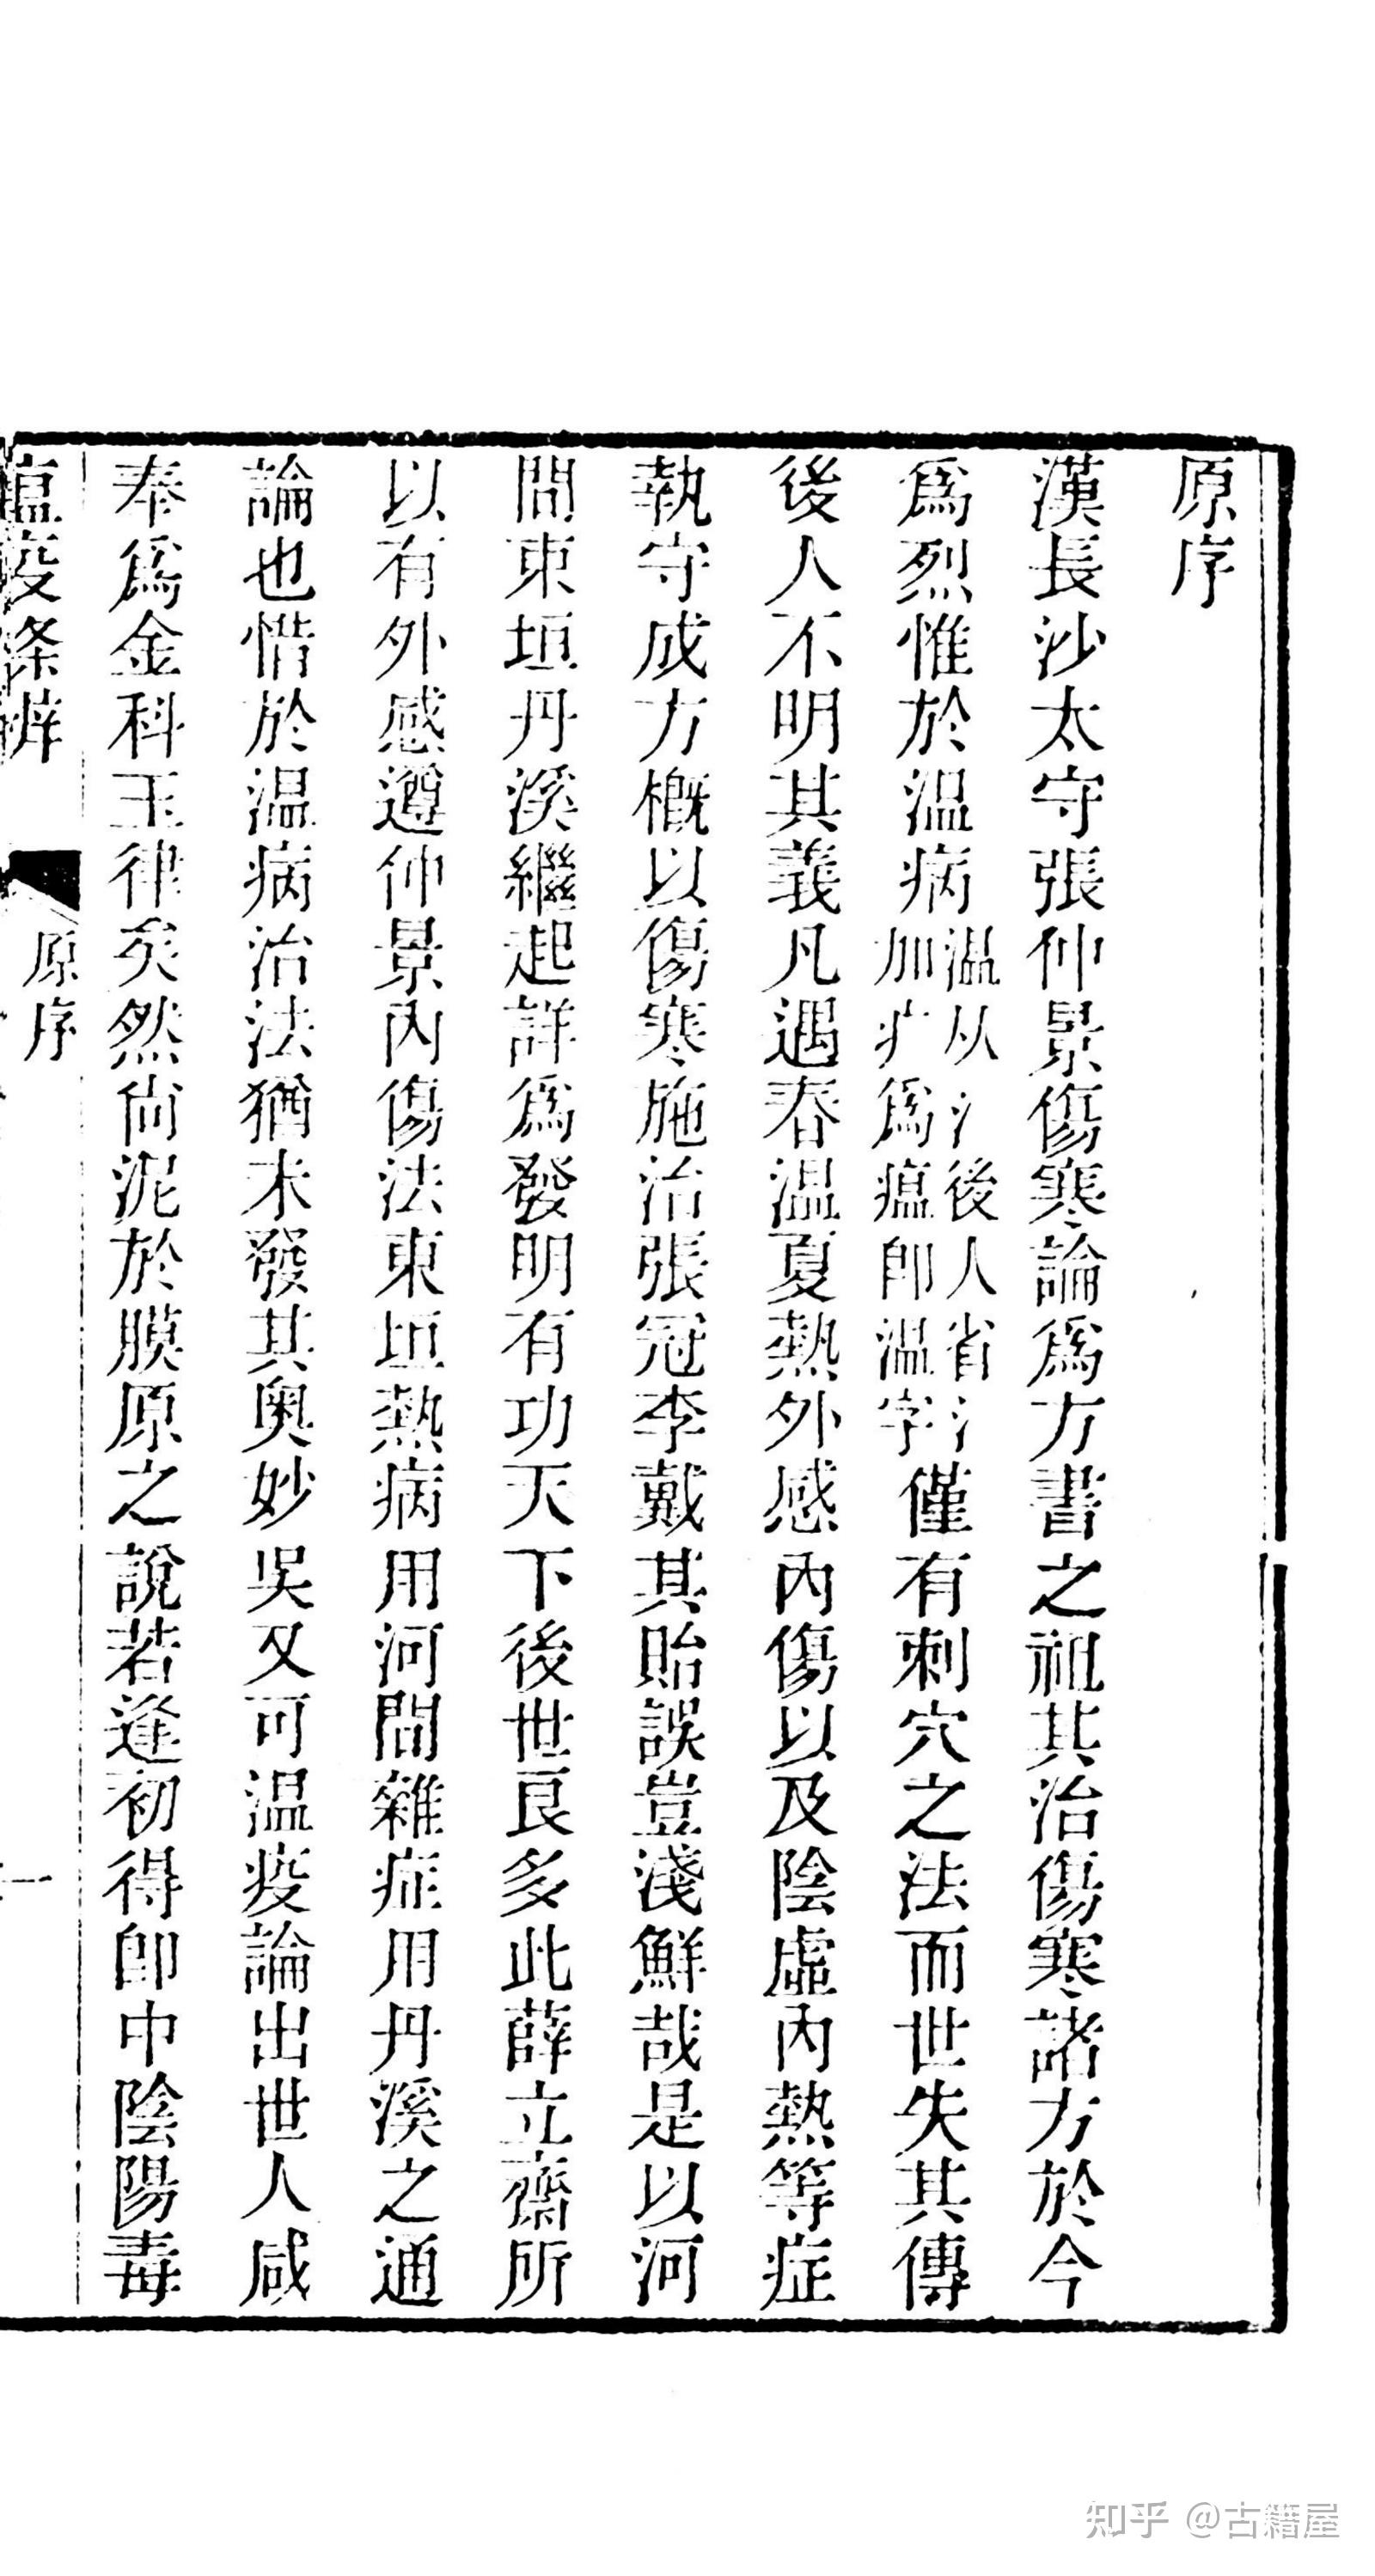 原序
漢長沙太守張仲景傷寒論爲方書之祖其治傷寒諸方於今
爲烈惟於温病温从氵後人省氵加疒爲瘟卽温字僅有刺穴之法而世失其傳
後人不明其義凡遇春温夏熱外感内傷以及陰虛内熱等症
執守成方概以傷寒施治張冠李戴其貽誤豈淺鮮哉是以河
間東垣丹溪繼起詳爲發明有功天下後世良多此薛立齋所
以有外感遵仲景内傷法東垣熱病用河間雜症用丹溪之通
論也惜於温病治法猶未發其奥妙吳又可温疫論出世人咸
奉爲金科玉律矣然尙泥於膜原之說若逢初得卽中陰陽毒
瘟疫条辨
原序
一
知乎 @古籍屋